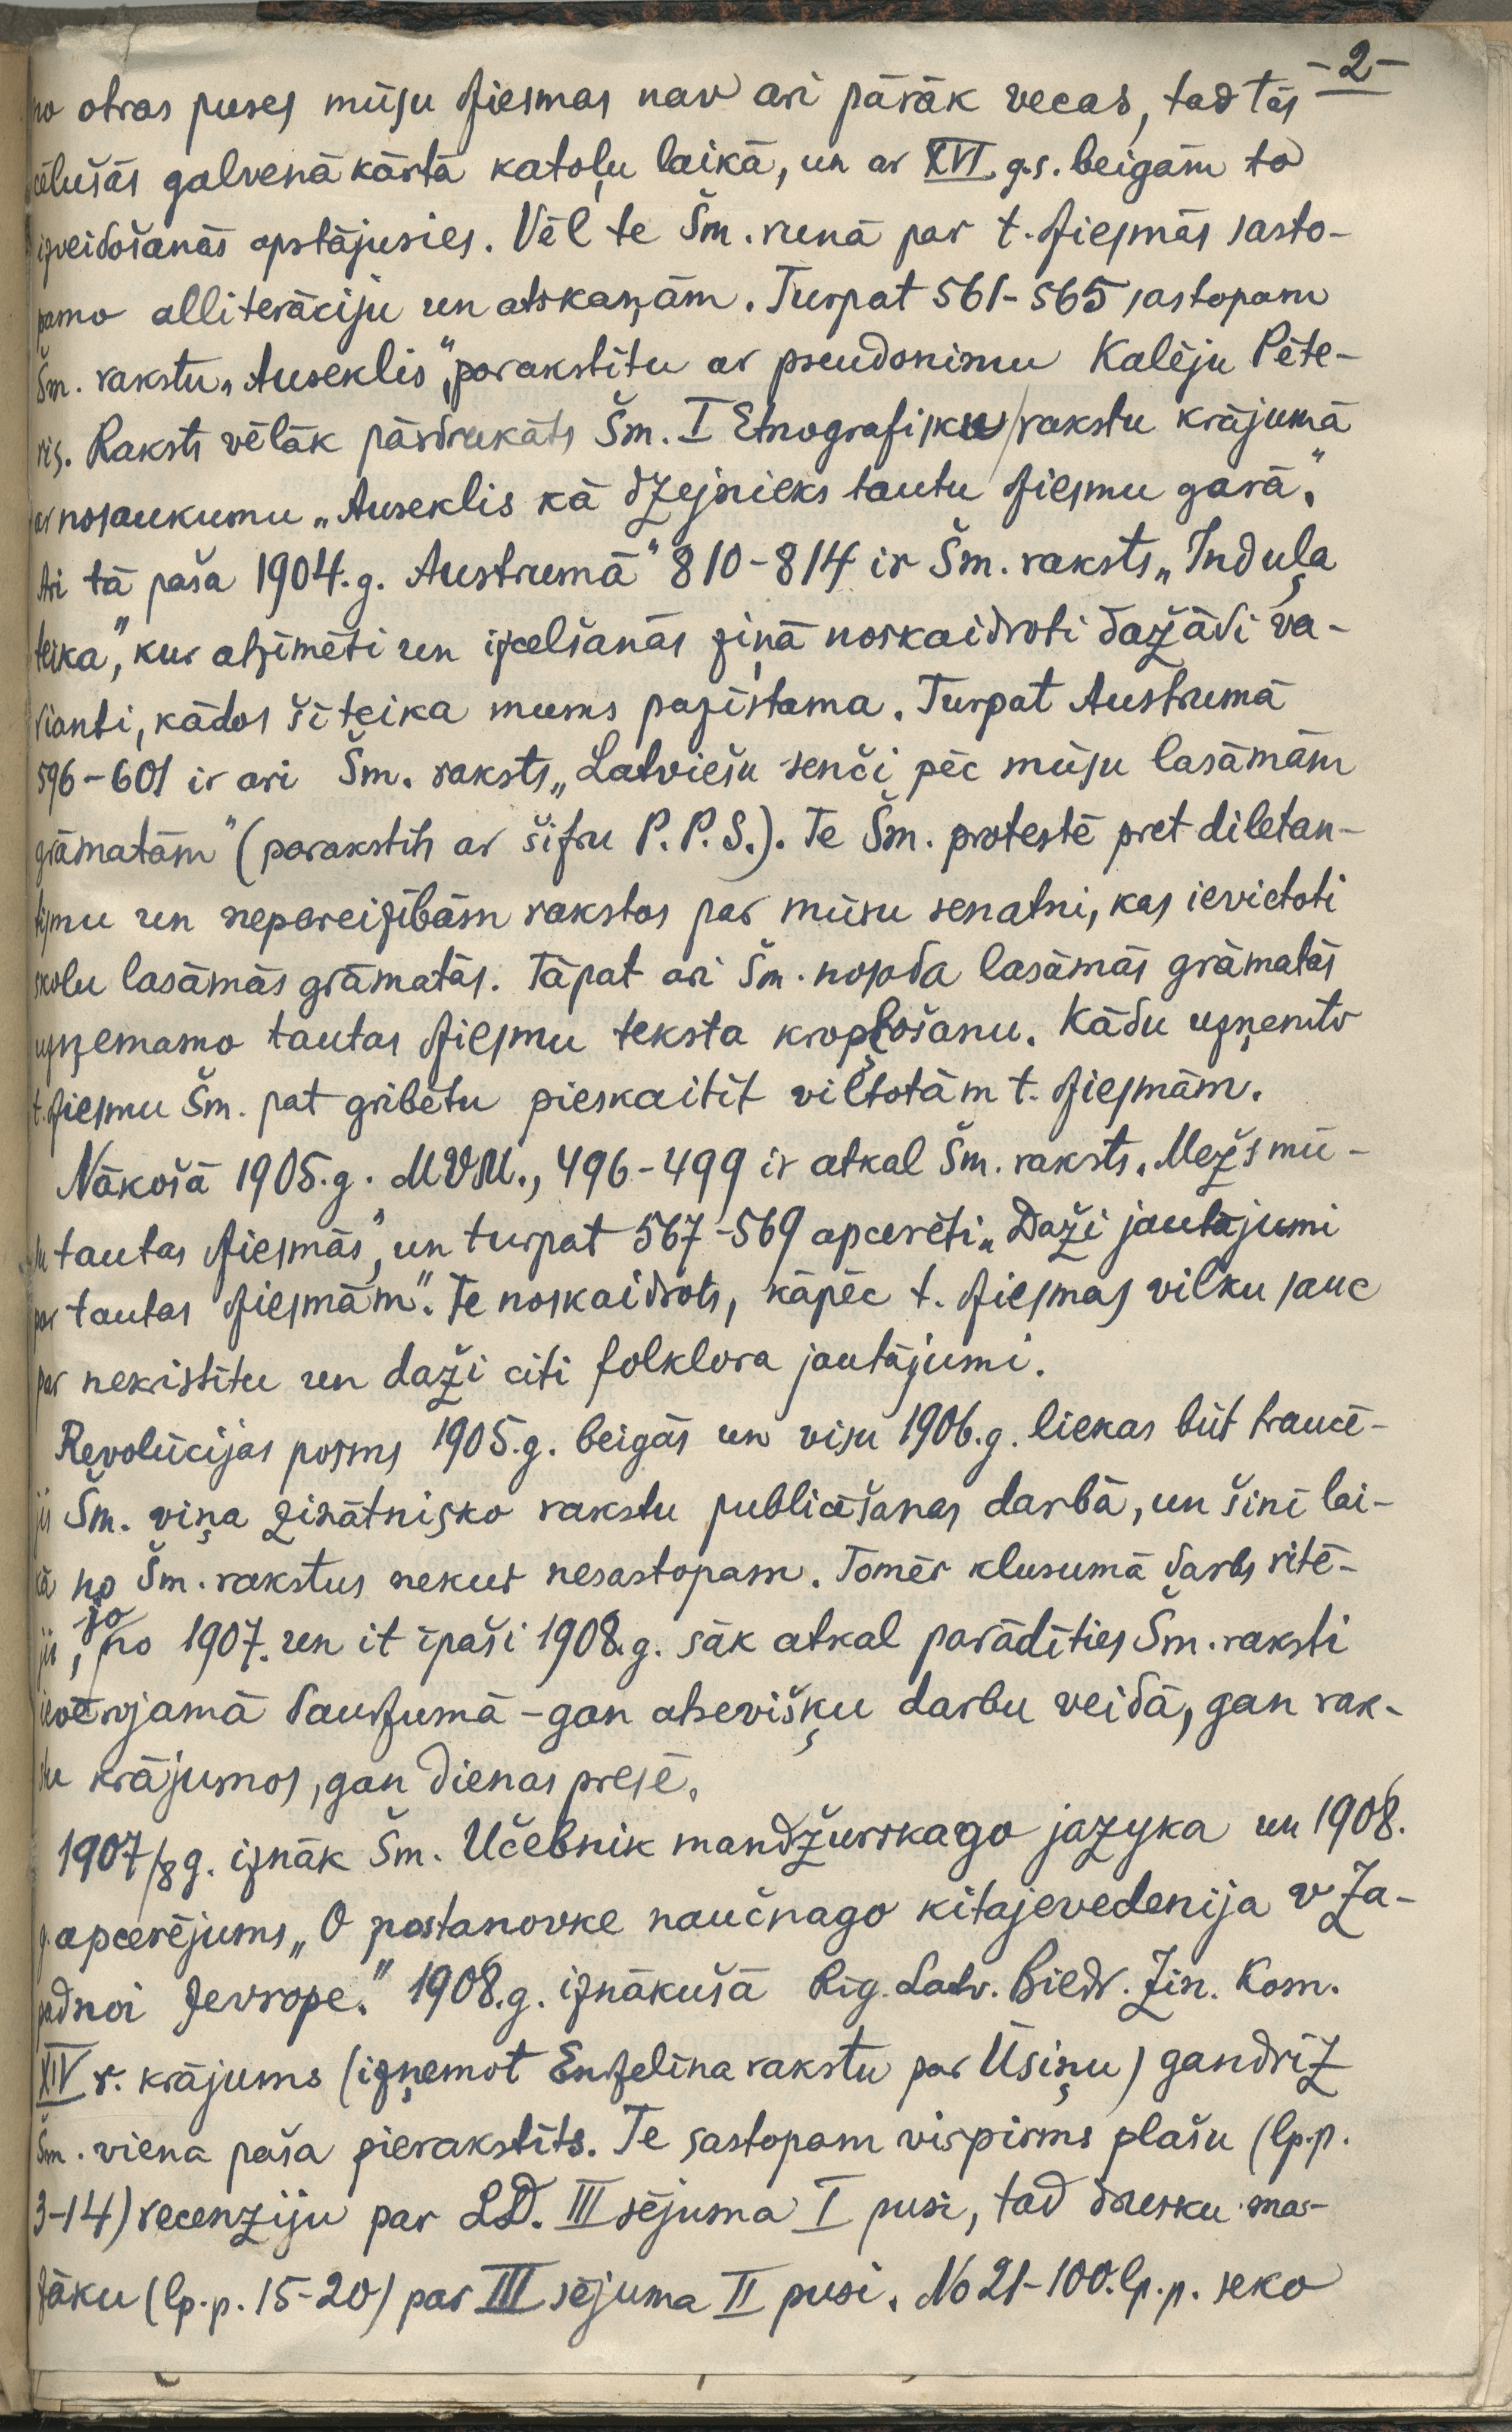 -2-
no otras puses mūsu dziesmas nav ari pārāk vecas, tad tās
cēlušās galvenā kārtā katoļu laikā, un ar XVI. g.s. beigām to
izveidošanās apstājusies. Vēl te Šm. runā par t. dziesmās sasto-
pamo alliterāciju un atskaņām. Turpat 561-565 sastopam
Šm. rakstu „Auseklis", parakstītu ar pseudonimu Kalēju Pēte-
ris. Raksts vēlāk pārdrukāts Šm. I Etnografisku rakstu krājumā
ar nosaukumu „Auseklis kā dzejnieks tautu dziesmu garā."
Ari tā paša 1904. g. Austrumā" 810-814 ir Šm. raksts „Induļa
teika", kur atzīmēti un izcelšanās ziņā noskaidroti dažādi va-
rianti, kādos šī teika mums pazīstama. Turpat Austrumā
596-601 ir ari Šm. raksts „Latviešu senči pēc mūsu lasāmām
grāmatām" (parakstīts ar šifru P. P. S.). Te Šm. protestē pret diletan-
tismu un nepareizībām rakstos par mūsu senatni, kas ievietoti
skolu lasāmās grāmatās. Tāpat ari Šm. nosoda lasāmās grāmatās
uzņemamo tautas dziesmu teksta kropļošanu. Kādu uzņemto
t. dziesmu Šm. pat gribētu pieskaitīt viltotām t. dziesmām.
Nākošā 1905. g. MVM., 496-499 ir atkal Šm. raksts „Mežs mū-
su tautas dziesmās", un turpat 567-569 apcerēti „Daži jautājumi
par tautas dziesmām". Te noskaidrots, kāpēc t. dziesmas vilku sauc
par nekristītu un daži citi folklora jautājumi.
Revolūcijas posms 1905. g. beigās un visu 1906. g. liekas būt traucē-
jis Šm. viņa zinātnisko rakstu publicēšanas darbā, un šinī lai-
kā no Šm. rakstus nekur nesastopam. Tomēr klusumā darbs ritē-
jis, jo no 1907. un it īpaši 1908. g. sāk atkal parādīties Šm. raksti
ievērojamā daudzumā - gan atsevišķu darbu veidā, gan rak-
stu krājumos, gan dienas presē.
1907/8 g. iznāk Šm. Učebnik mandžurskago jazyka un 1908.
g. apcerējums „O postanovke naučnago kitajevedenija v Za-
padnoi Jevrope." 1908. g. iznākušā Rīg. Latv. Biedr. Zin. Kom.
XIV r. krājums (izņemot Endzelīna rakstu par Ūsiņu) gandrīz
Šm. viena paša pierakstīts. Te sastopam vispirms plašu (lp.p.
3-14) recenziju par LD. III sējuma I pusi, tad drusku ma-
zāku (lp.p. 15-20) par III sējuma II pusi. No 21-100. lp.p. seko